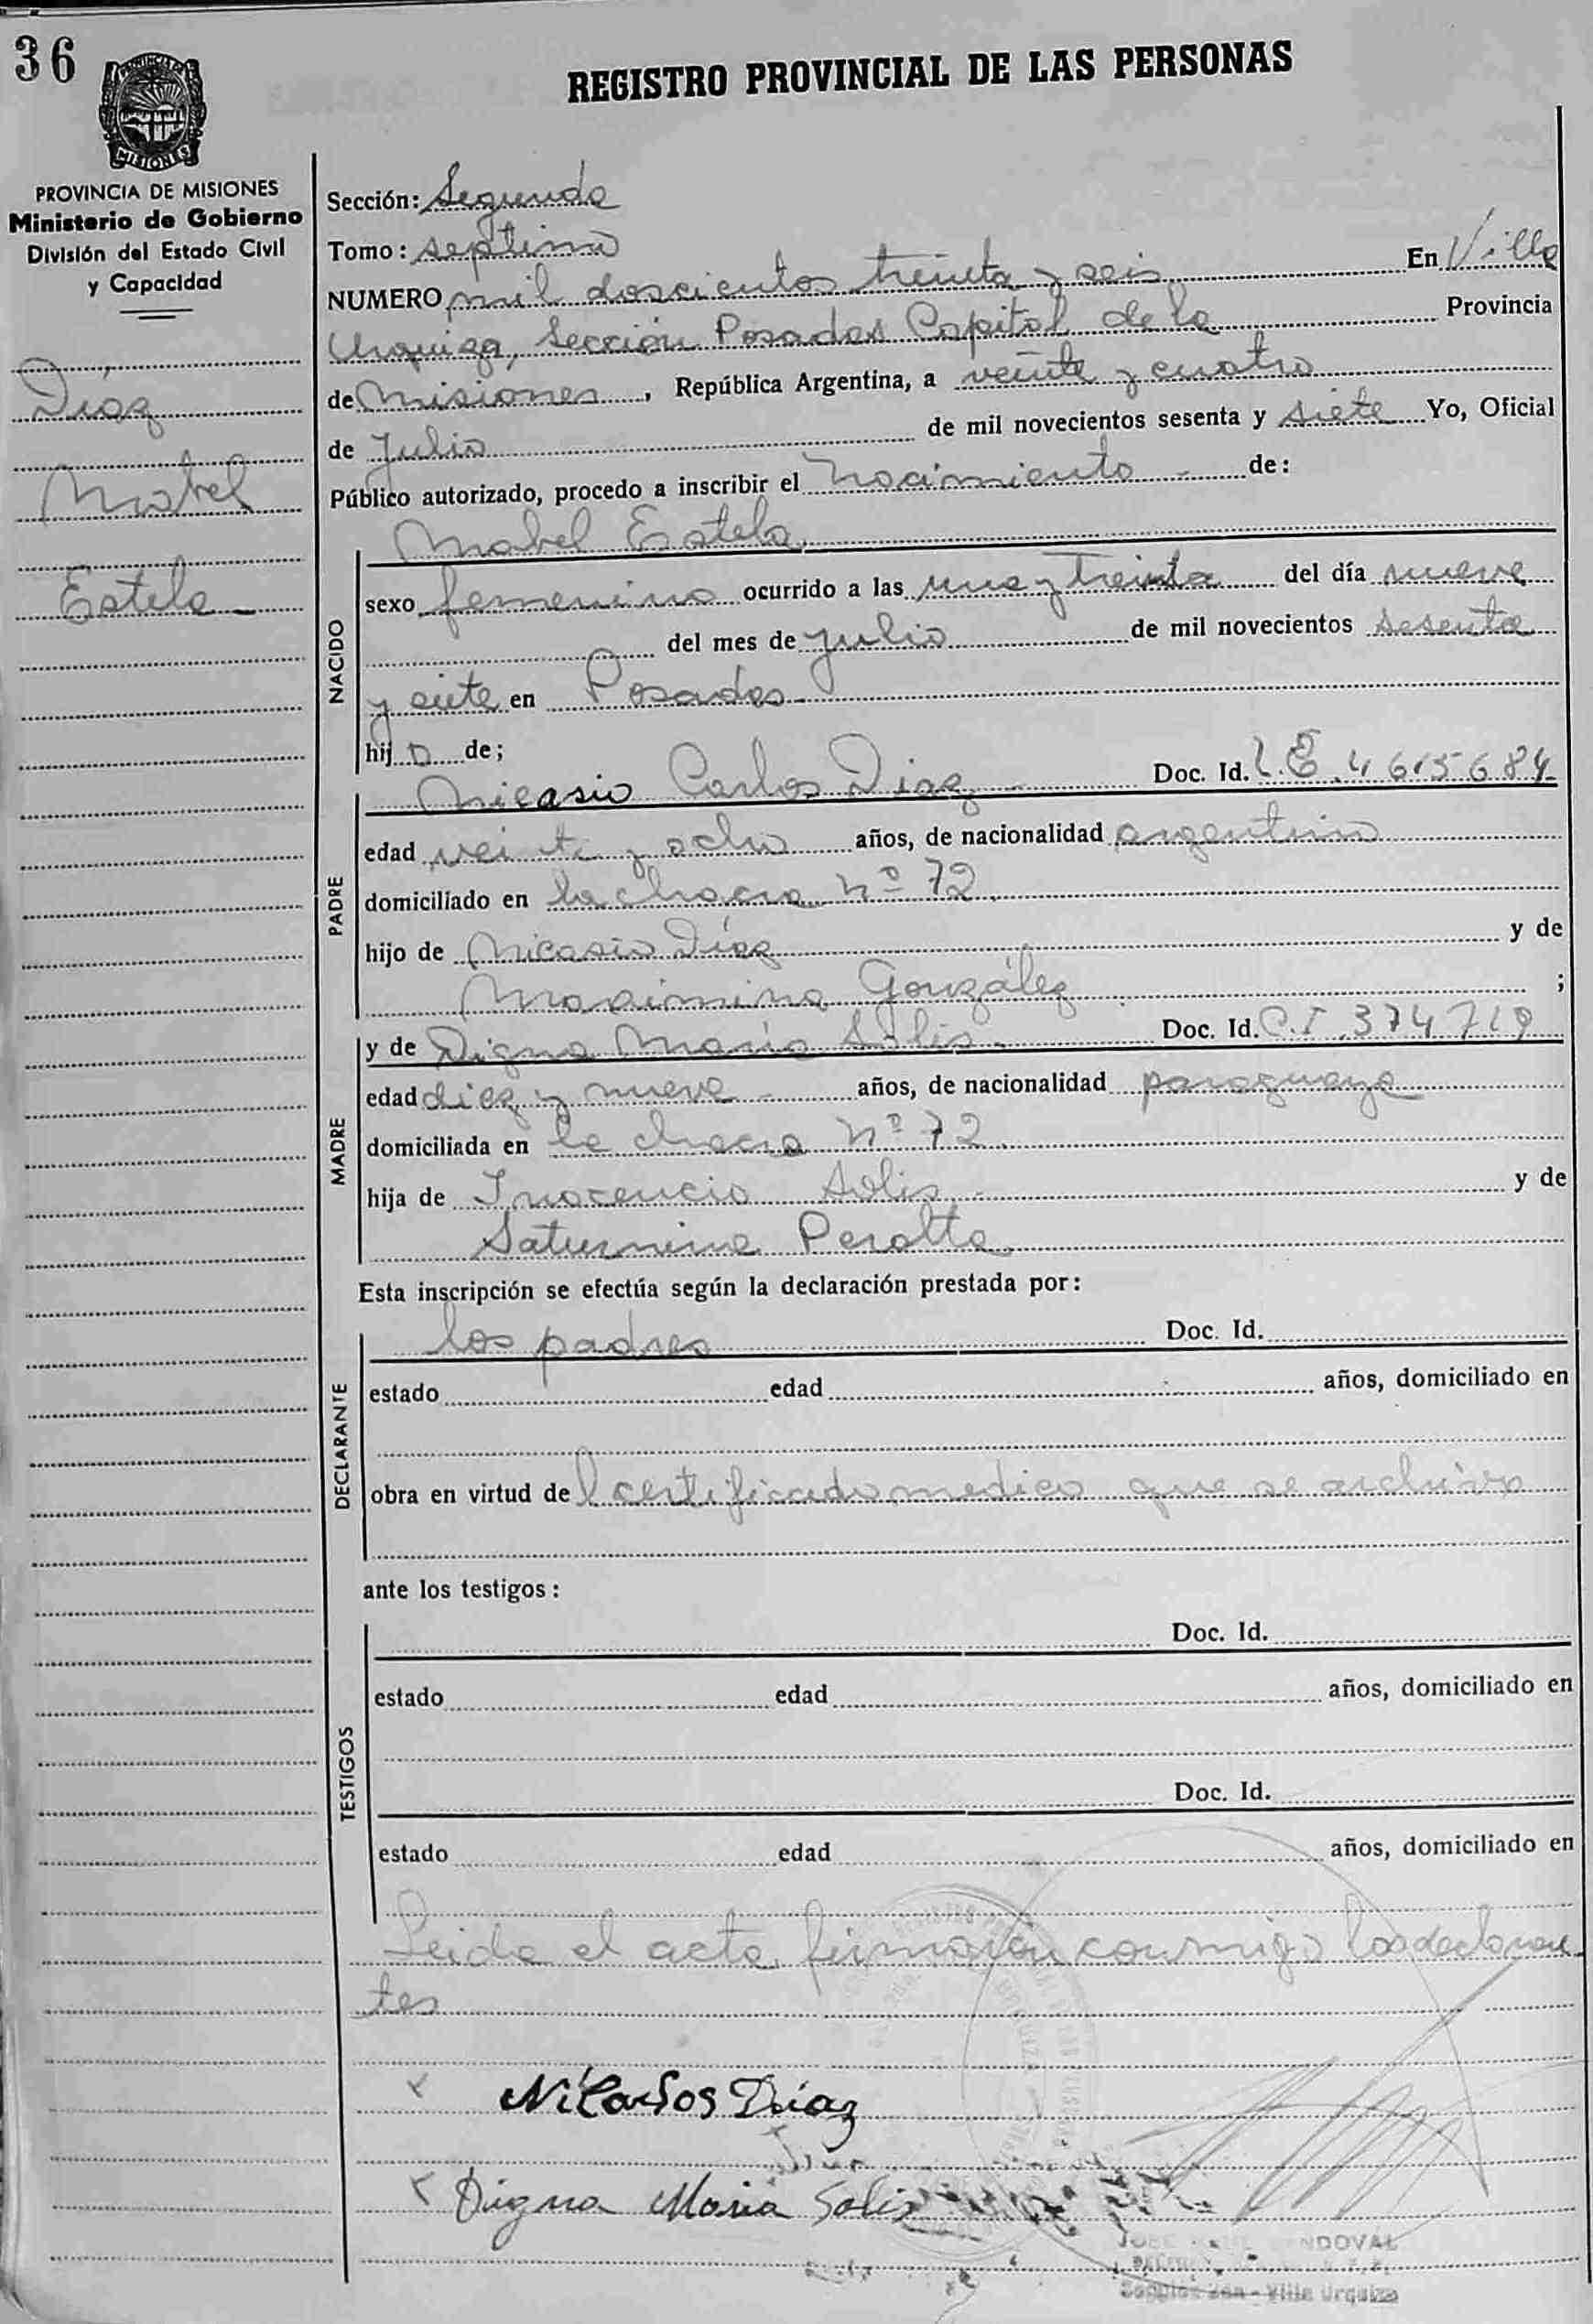 36
MISIONES
REGISTRO PROVINCIAL DE LAS PERSONAS
PROVINCIA DE MISIONES
Ministerio de Gobierno
División del Estado Civil
y Capacidad
Díaz
Mabel
Estela
Sección: Segunda
Tomo: septimo
NUMERO mil doscientos treinta y seis En Villa
Urquiza, Sección Posadas Capital de la Provincia
de Misiones, República Argentina, a veinte y cuatro
de Julio de mil novecientos sesenta y siete Yo, Oficial
Público autorizado, procedo a inscribir el nacimiento - de:
Mabel Estela
NACIDO
sexo femenino ocurrido a las una y treinta del día nueve
del mes de julio de mil novecientos sesenta
y siete en Posadas
hij de;
PADRE
Nicasio Carlos Diaz Doc. Id. L.E. 4615684
edad veinte y ocho años, de nacionalidad argentino
domiciliado en la chacra nº 72
hijo de Nicasio Díaz y de
Maximina González ;
MADRE
y de Digna María Solis Doc. Id. C.I. 374719
edad diez y nueve - años, de nacionalidad paraguaya
domiciliada en la chacra nº 72
hija de Inocencio Solis y de
Saturnina Peralta
Esta inscripción se efectúa según la declaración prestada por:
DECLARANTE
los padres Doc. Id.
estado edad años, domiciliado en
obra en virtud del certificado medico que se archiva
ante los testigos:
TESTIGOS
Doc. Id.
estado edad años, domiciliado en
Doc. Id.
estado edad años, domiciliado en
Leida el acta, firmaron conmigo los declaran
tes
NiCarlos Díaz
Digna Maria Solis
Villa Urquiza